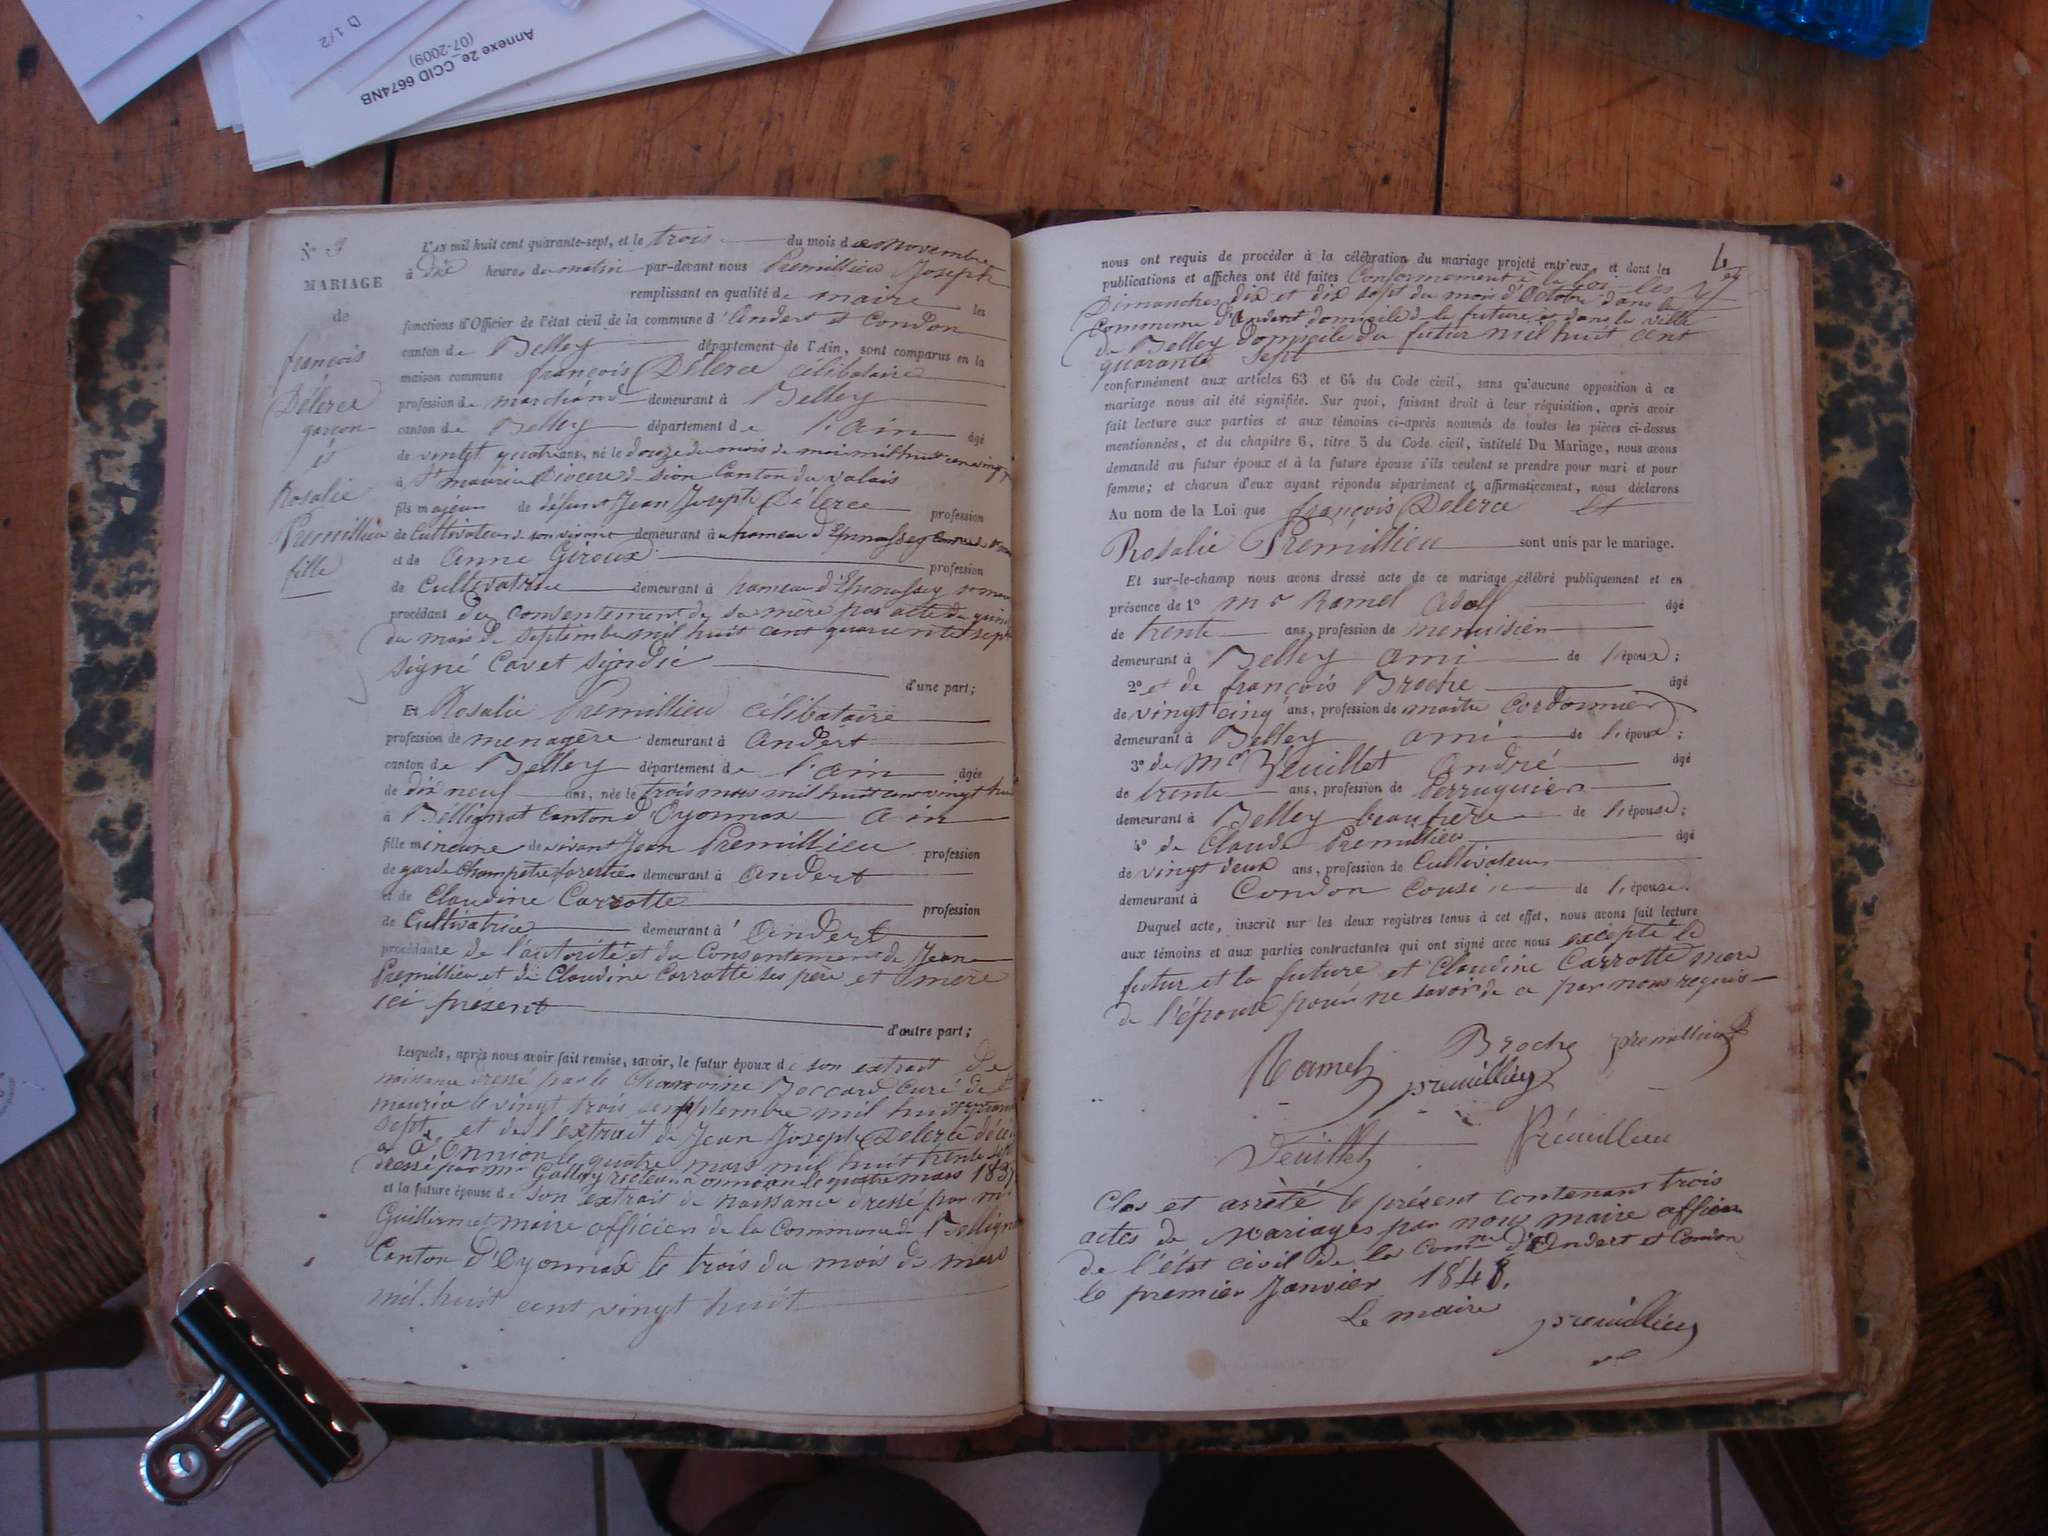 D 1/2
Annexe 2e CCID 6674NB
(07-2009)
N° 3
MARIAGE
de
françois
Délerce
garçon
et
Rosalie
Premillieu
fille
L'AN mil huit cent quarante-sept, et le trois du mois de novembre
à dix heures du matin par-devant nous Premillieu Joseph
remplissant en qualité de maire les
fonctions d'Officier de l'état civil de la commune d'Andert et Condon
canton de Belley département de l'Ain, sont comparus en la
maison commune françois Délerce célibataire
profession de marchand demeurant à Belley
canton de Belley département de l'ain âgé
de vingt quatre ans, né le douze du mois de mai mil huit cent vingt
à St maurice Diocese de sion Canton du valais
fils majeur de défunt Jean Joseph Delerce profession
de Cultivateur de son vivant demeurant à hameau d'Epinassey
et de Anne Géroux profession
de Cultivatrice demeurant à hameau d'Epinassey
procédant du Consentement de sa mere par acte du
du mois de septembre mil huit cent quarante sept
signé Cavet sÿndic
d'une part;
Et Rosalie Premillieu célibataire
profession de menagère demeurant à Andert
canton de Belley département de l'ain âgée
de dix neuf ans, née le trois mars mil huit cent vingt huit
à Béllignat Canton d'Oyonnax Ain
fille mineure de vivant Jean Premillieu profession
de garde Champêtre forestier demeurant à Andert
et de Claudine Carrotte profession
de Cultivatrice demeurant à Andert
procédante de l'autorité et du Consentement de Jean
Premillieu et de Claudine Carrotte ses père et mere
ici présent
d'autre part;
Lesquels, après nous avoir fait remise, savoir, le futur époux de son extrait De
naissance dressé par le Chanoine Boccard Curé de St
maurice le vingt trois septembre mil huit quarante
sept et de l'extrait de Jean Joseph Delerce décédé
a onnion le quatre mars mil huit trente sept
dressé par mr recteur a onnion le quatre mars 1837
et la future épouse de son extrait de naissance dressé par mr
Guillermet maire officier de la Commune de Bellignat
Canton d'Oyonnax le trois du mois de mars
mil huit cent vingt huit
nous ont requis de procéder à la célébration du mariage projeté entr'eux, et dont les
publications et affiches ont été faites Conformement à la loi les
Dimanches dix et dix sept du mois d'Octobre dans la
Commune d'Andert domicile de la future et dans la ville
de Belley domicile du futur mil huit cent
quarante sept
conformément aux articles 63 et 64 du Code civil, sans qu'aucune opposition à ce
mariage nous ait été signifiée. Sur quoi, faisant droit à leur réquisition, après avoir
fait lecture aux parties et aux témoins ci-après nommés de toutes les pièces ci-dessus
mentionnées, et du chapitre 6, titre 5 du Code civil, intitulé Du Mariage, nous avons
demandé au futur époux et à la future épouse s'ils veulent se prendre pour mari et pour
femme; et chacun d'eux ayant répondu séparément et affirmativement, nous déclarons
Au nom de la Loi que françois Delerce Et
Rosalie Premillieu sont unis par le mariage.
Et sur-le-champ nous avons dressé acte de ce mariage célébré publiquement et en
présence de 1° mr Ramel Adolf âgé
de trente ans, profession de menuisier
demeurant à Belley ami de l'époux;
2° et de françois Broche âgé
de vingt cinq ans, profession de maitre Cordonnier
demeurant à Belley ami de l'époux;
3° de Mr Feuillet André âgé
de trente ans, profession de Perruquier
demeurant à Belley beaufrère de l'épouse;
4° de Claude Premillieu âgé
de vingt deux ans, profession de Cultivateur
demeurant à Condon Cousin de l'épouse.
Duquel acte, inscrit sur les deux registres tenus à cet effet, nous avons fait lecture
aux témoins et aux parties contractantes qui ont signé avec nous excepté le
futur et la future et Claudine Carrotte mere
de l'épouse pour ne savoir de ce par nous requis
Ramel Broche premillieu
premillieu
Feuillet Prémillieu
Clos et arrêté le présent contenant trois
actes de mariages par nous maire officier
de l'état civil de la Comne d'Andert et Condon
le premier Janvier 1848.
Le maire
premillieu